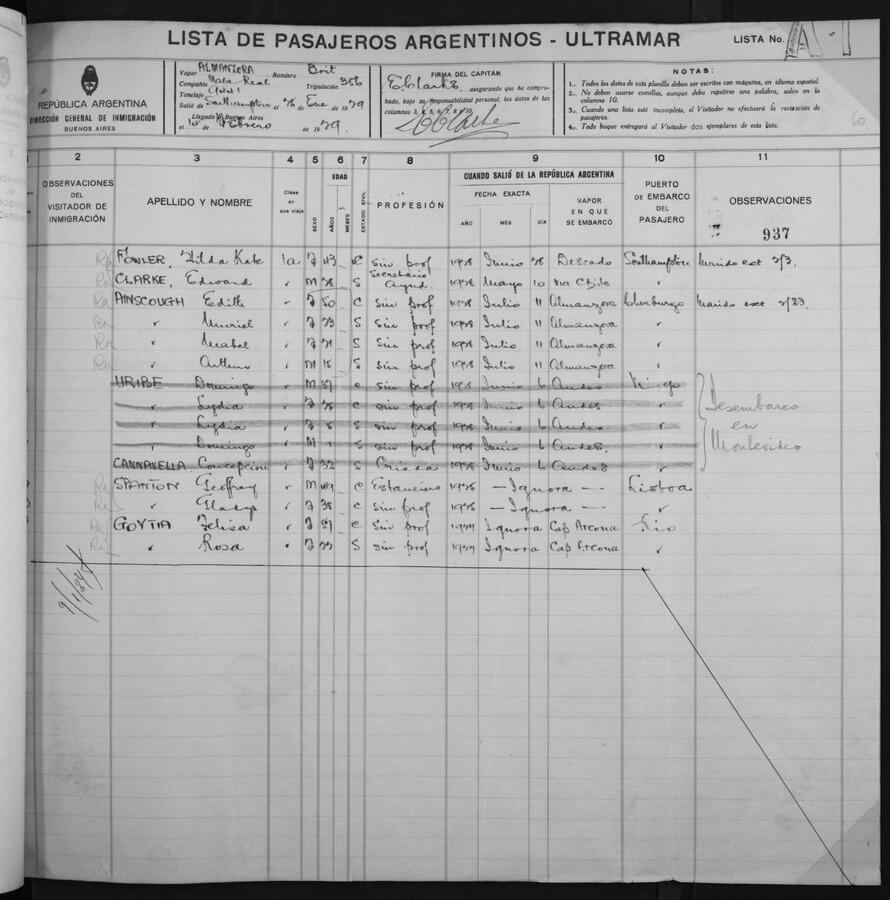 LISTA DE PASAJEROS ARGENTINOS - ULTRAMAR
LISTA No.
REPÚBLICA ARGENTINA
DIRECCIÓN GENERAL DE INMIGRACIÓN
BUENOS AIRES
Vapor ALMANZORA Bandera Brit
Compañía Mala Real Tripulación 356
Tonelaje
Salió de Southampton el de Ene de 1939
Llegado a Buenos Aires
el de Febrero de 1939.
FIRMA DEL CAPITÁN
E. Clarke asegurando que ha comprobado, bajo su responsabilidad personal, los datos de las columnas 3, 4, 5, 6, 7, 8 y 10.
NOTAS:
1.. Todos los datos de esta planilla deben ser escritos con máquina, en idioma español.
2.. No deben usarse comillas, aunque deba repetirse una palabra, salvo en la columna 10.
3.. Cuando una lista esté incompleta, el Visitador no efectuará la recepción de pasajeros.
4.. Todo buque entregará al Visitador dos ejemplares de esta lista.
60
2 3 4 5 6 7 8 9 10 11
OBSERVACIONES DEL VISITADOR DE INMIGRACIÓN
APELLIDO Y NOMBRE
Clase en que viaja
SEXO
EDAD
AÑOS
MESES
ESTADO CIVIL
PROFESIÓN
CUANDO SALIÓ DE LA REPÚBLICA ARGENTINA
FECHA EXACTA
AÑO MES DÍA
VAPOR EN QUE SE EMBARCÓ
PUERTO DE EMBARCO DEL PASAJERO
OBSERVACIONES
937
FOWLER, Hilda Kate 1a F 43 C Sin prof 1938 Junio 28 Deseado Southampton Marido ext 2/3.
CLARKE, Edward " M 28 S Secretario Ayud. 1938 Mayo 10 Via Chile "
AINSCOUGH Edith " F 50 C Sin prof 1938 Julio 11 Almanzora Cherburgo Marido ext 2/23.
" Muriel " F 23 S Sin prof 1938 Julio 11 Almanzora "
" Mabel " F 21 S Sin prof 1938 Julio 11 Almanzora "
" Arthur " M 18 S Sin prof 1938 Julio 11 Almanzora "
URIBE Domingo " M 37 C Sin prof 1938 Junio 6 Andes Vigo
" Lydia " F C Sin prof 1938 Junio 6 Andes "
" Lydia " F S Sin prof 1938 Junio 6 Andes "
" Domingo " M S Sin prof 1938 Junio 6 Andes "
CANNAVELLA, Concepcion " F 32 S Criada 1938 Junio 6 Andes "
Desembarco en Montevideo
STANTON Geoffrey " M 49 C Estanciero 1938 — Ignora — Lisboa
" Gladys " F 38 C Sin prof — Ignora — "
GOYTIA Felisa " F C Sin prof Ignora Cap Arcona Rio
" Rosa " F S Sin prof Ignora Cap Arcona "